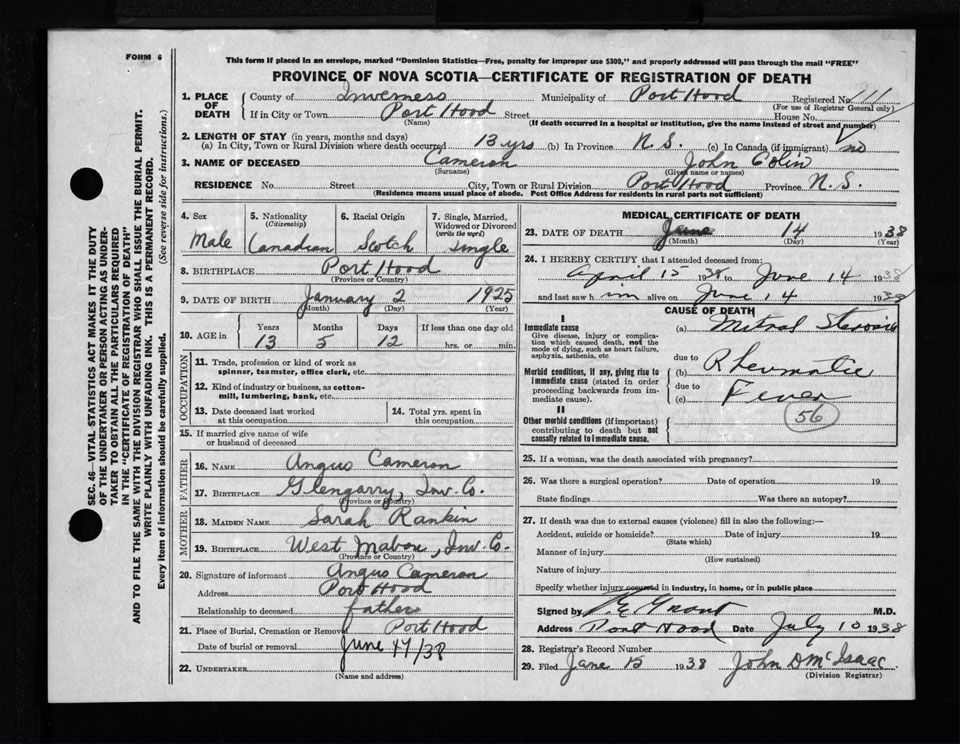 FORM 6
This form if placed in an envelope, marked "Dominion Statistics—Free, penalty for improper use $300," and properly addressed will pass through the mail "FREE"
PROVINCE OF NOVA SCOTIA—CERTIFICATE OF REGISTRATION OF DEATH
1. PLACE OF DEATH
County of Inverness Municipality of Port Hood Registered No. 711
(For use of Registrar General only)
If in City or Town Port Hood Street House No.
(Name) (If death occurred in a hospital or institution, give the name instead of street and number)
2. LENGTH OF STAY (in years, months and days)
(a) In City, Town or Rural Division where death occurred 13 yrs (b) In Province N. S. (c) In Canada (if immigrant) no
3. NAME OF DECEASED Cameron John Colin
(Surname) (Given name or names)
RESIDENCE No. Street City, Town or Rural Division Port Hood Province N. S.
(Residence means usual place of abode. Post Office Address for residents in rural parts not sufficient)
4. Sex Male
5. Nationality (Citizenship) Canadian
6. Racial Origin Scotch
7. Single, Married, Widowed or Divorced (write the word) single
8. BIRTHPLACE Port Hood
(Province or Country)
9. DATE OF BIRTH January 2 1925
(Month) (Day) (Year)
10. AGE in Years Months Days If less than one day old
13 5 12 hrs. or min.
OCCUPATION
11. Trade, profession or kind of work as spinner, teamster, office clerk, etc.
12. Kind of industry or business, as cotton-mill, lumbering, bank, etc.
13. Date deceased last worked at this occupation
14. Total yrs. spent in this occupation
15. If married give name of wife or husband of deceased
FATHER
16. NAME Angus Cameron
17. BIRTHPLACE Glengarry, Inv. Co.
(Province or Country)
MOTHER
18. MAIDEN NAME Sarah Rankin
19. BIRTHPLACE West Mabou, Inv. Co.
(Province or Country)
20. Signature of informant Angus Cameron
Address Port Hood
Relationship to deceased father
21. Place of Burial, Cremation or Removal Port Hood
Date of burial or removal June 17/38
22. UNDERTAKER
(Name and address)
MEDICAL CERTIFICATE OF DEATH
23. DATE OF DEATH June 14 1938
(Month) (Day) (Year)
24. I HEREBY CERTIFY that I attended deceased from:
April 15 1938 to June 14 1938
and last saw him alive on June 14 1938
CAUSE OF DEATH
I
Immediate cause
Give disease, injury or complication which caused death, not the mode of dying, such as heart failure, asphyxia, asthenia, etc
(a) Mitral Stenosis
due to
Morbid conditions, if any, giving rise to immediate cause (stated in order proceeding backwards from immediate cause).
(b) Rheumatic
due to
(c) Fever
56
II
Other morbid conditions (if important) contributing to death but not causally related to immediate cause.
25. If a woman, was the death associated with pregnancy?
26. Was there a surgical operation? Date of operation 19
State findings Was there an autopsy?
27. If death was due to external causes (violence) fill in also the following:—
Accident, suicide or homicide? Date of injury 19
(State which)
Manner of injury
(How sustained)
Nature of injury
Specify whether injury occurred in industry, in home, or in public place
Signed by Grant M.D.
Address Port Hood Date July 10 1938
28. Registrar's Record Number
29. Filed June 15 1938 John D McIsaac
(Division Registrar)
SEC. 46—VITAL STATISTICS ACT MAKES IT THE DUTY
OF THE UNDERTAKER OR PERSON ACTING AS UNDER-
TAKER TO OBTAIN ALL THE PARTICULARS REQUIRED
IN THE "CERTIFICATE OF REGISTRATION OF DEATH"
AND TO FILE THE SAME WITH THE DIVISION REGISTRAR WHO SHALL ISSUE THE BURIAL PERMIT.
WRITE PLAINLY WITH UNFADING INK. THIS IS A PERMANENT RECORD.
Every item of information should be carefully supplied. (See reverse side for instructions.)